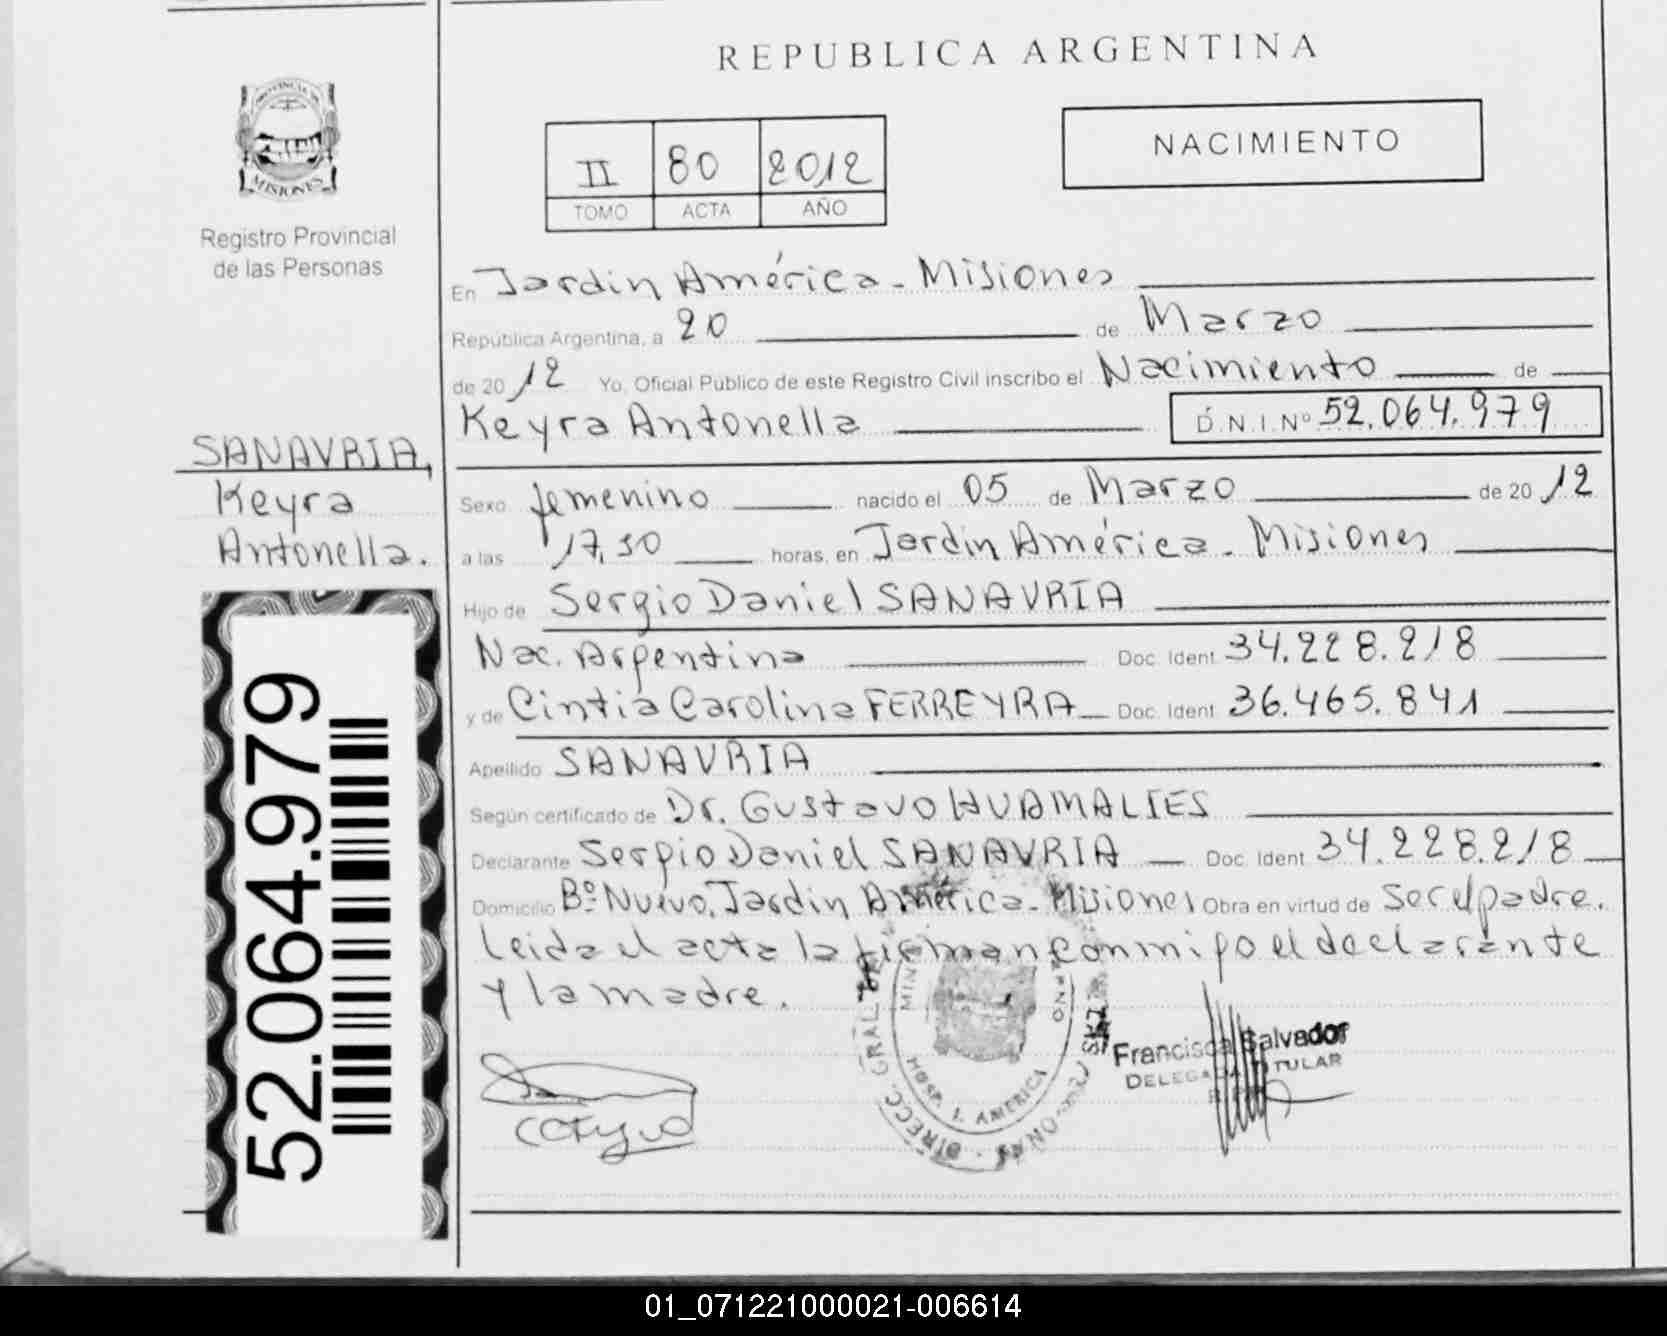 REPUBLICA ARGENTINA
PROVINCIA DE
MISIONES
Registro Provincial
de las Personas
II 80 2012
TOMO ACTA AÑO
NACIMIENTO
En Jardin América - Misiones
República Argentina, a 20 de Marzo
de 2012 Yo, Oficial Público de este Registro Civil inscribo el Nacimiento de
Keyra Antonella D.N.I.Nº 52.064.979
SANAVRIA,
Keyra
Antonella.
Sexo femenino nacido el 05 de Marzo de 2012
a las 17,30 horas, en Jardin América - Misiones
Hijo de Sergio Daniel SANAVRIA
Nac. Argentina Doc. Ident. 34.228.218
y de Cintia Carolina FERREYRA Doc. Ident. 36.465.841
Apellido SANAVRIA
Según certificado de Dr. Gustavo HUAMALIES
Declarante Sergio Daniel SANAVRIA Doc. Ident. 34.228.218
Domicilio Bº Nuevo, Jardin América - Misiones Obra en virtud de ser el padre.
Leida el acta la firman conmigo el declarante
y la madre.
52.064.979
DIRECC. GRAL.
HOSP. J. AMERICA
Francisca Salvador
DELEGADA TITULAR
01_071221000021-006614